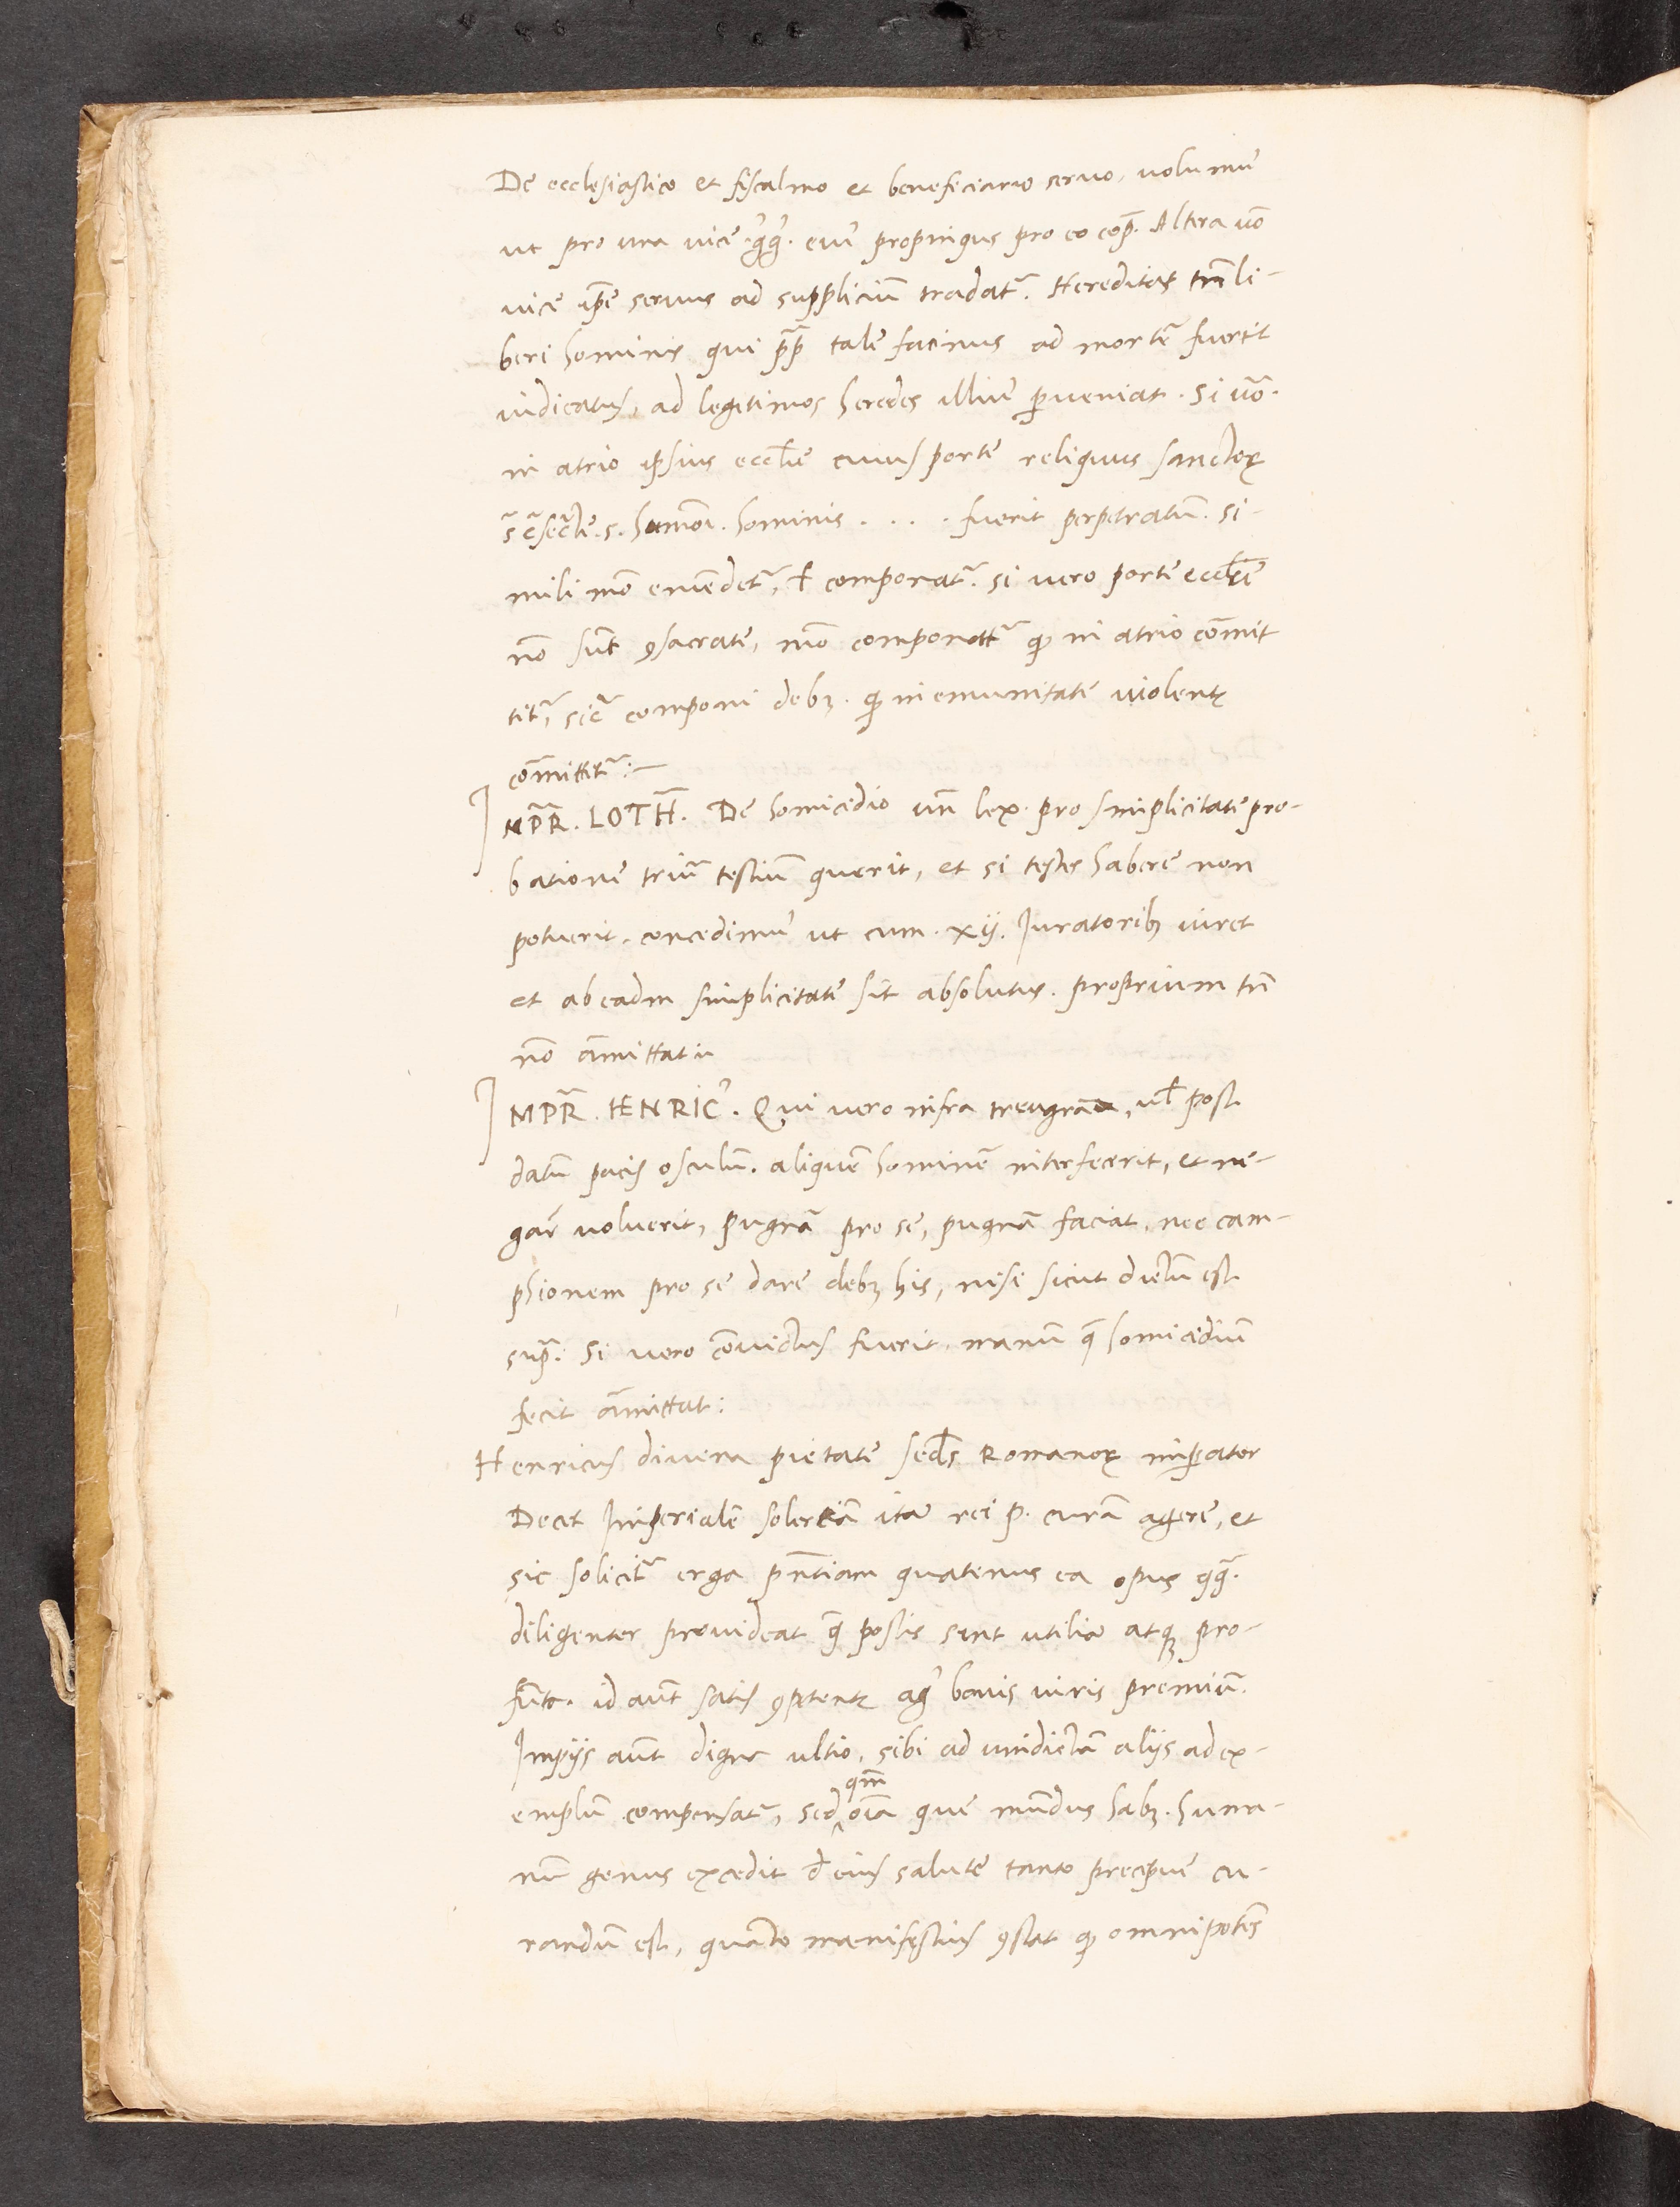 De ecclesiastico et fiscalino et beneficiario seruo, volumus
ut pro una uice .gͥgͥ. eius propinqus pro eo cop̄. Altera uō
uice ip̄e seruus ad suppliciū tradat᷑. Hereditas tn̄ li-
beri hominis qui pp̄ tale facinus ad mortē fuerit
iudicatus, ad legitimos heredes illius ꝑueniat. Si uō.
in atrio ipsius eccl̄ie cuius porte reliquiis sanctoꝝ
fuerit perpetratū. si-
mili mō emēdet᷑, ł componat᷑. si uero porte eccl̄ie
nō sūt ꝯsacrate, mō componat᷑ qͥ in atrio cōmit
titᷣ, sic̄ componi debꝫ. qͥ in emunitate uiolenꝼ
cōmittit᷑:—
IMPR̄. LOTH̄. De homicidio un̄ lex pro simplicitate pro-
batione triū testiū querit, et si testes habere non
potuerit. concedimus ut cum .xij. Iuratoribꝫ iuret
et ab eadm simplicitate sit absolutus. proprium tn̄
nō āmittat:
IMPR̄. HENRIC᾽. Qui uero infra treugam, ul̄ post
datū pacis osculū. aliquē hominē interfecerit, et ne-
gar̄ uoluerit, pugnā pro se, pugnā faciat. nec cam-
phionem pro se dare debꝫ his, nisi sicut dictū est
supᷓ. Si uero cōuictus fuerit. manū qͣ homicidiū
fecit āmittat:
Henricus diuina pietate seds Romanoꝝ imꝑator
Decet Imperialē solertiā ita rei p. curā agere, et
sic solicit᷑ erga pn̄tiam quatenus ea opus
diligenter prouideat qͣ postis sint utilia atqꝫ pro-
fūto. id aūt satis ꝯpetenꝼ agͥ bonis uiris premiū.
Impijs aūt digna ultio, sibi ad uindictā alijs ad ex-
emplū compensat᷑, sed qm̄ oīa que mūdus habꝫ. huma-
nū genus excedit đ eius salute tanto precipue cu-
randū est, quāto manifestius ꝯstat qͥ omnipotēs